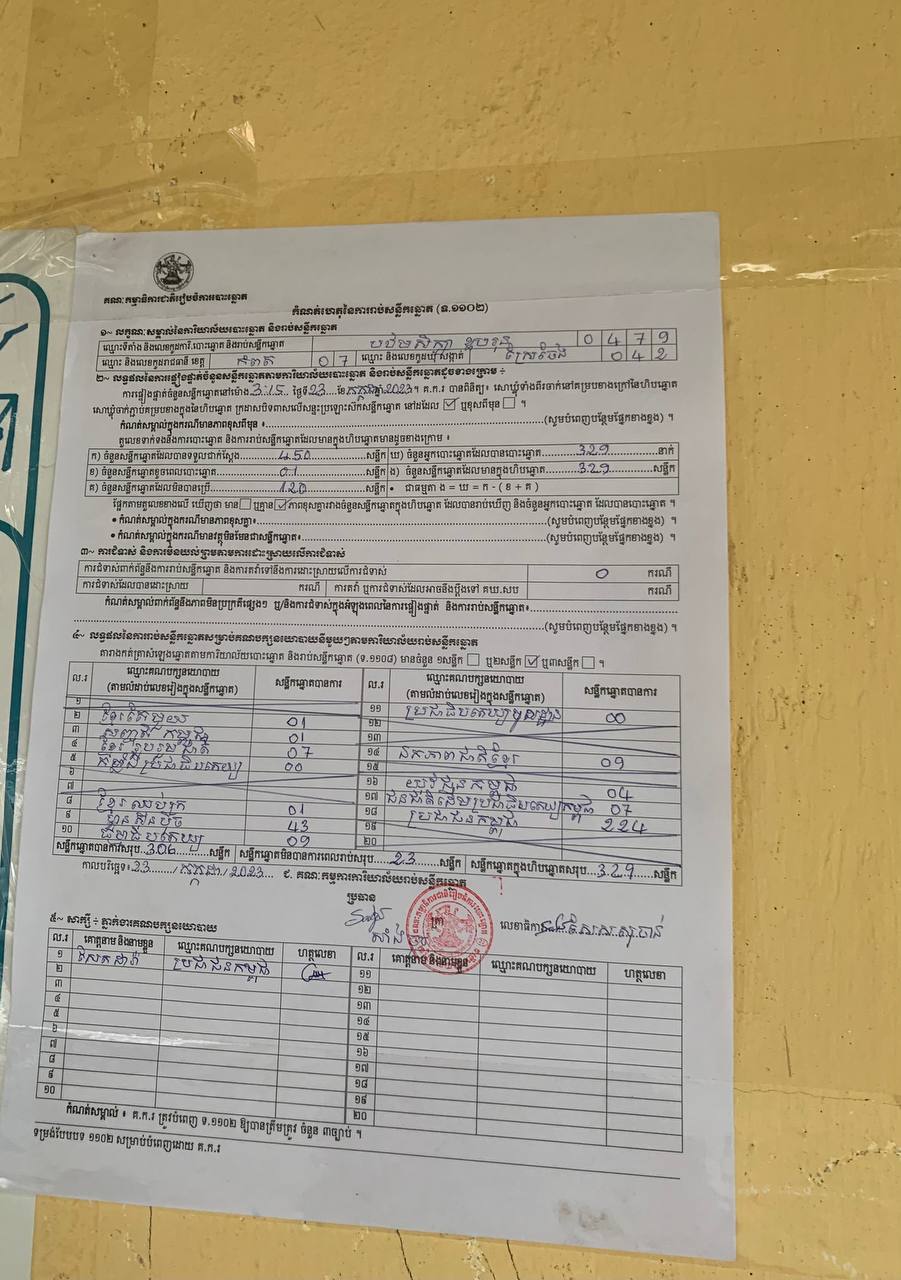 គណៈកម្មាធិការជាតិរៀបចំការបោះឆ្នោត
កំណត់ហេតុនៃការរាប់សន្លឹកឆ្នោត (ទ.១១០២)
១~ លក្ខណៈសម្គាល់នៃការិយាល័យបោះឆ្នោត និងរាប់សន្លឹកឆ្នោត
ឈ្មោះទីតាំង និងលេខកូដការិ.បោះឆ្នោត និងរាប់សន្លឹកឆ្នោត 0 4 7 9
ឈ្មោះ និងលេខកូដរាជធានី ខេត្ត កំពត 0 7 ឈ្មោះ និងលេខកូដឃុំ សង្កាត់ 0 4 2
២~ លទ្ធផលនៃការផ្ទៀងផ្ទាត់ចំនួនសន្លឹកឆ្នោតតាមការិយាល័យបោះឆ្នោត និងរាប់សន្លឹកឆ្នោតដូចខាងក្រោម ៖
ការផ្ទៀងផ្ទាត់ចំនួនសន្លឹកឆ្នោតនៅម៉ោង 3:15 ថ្ងៃទី 23 ខែ កក្កដា ឆ្នាំ 2023។ គ.ក.រ បានពិនិត្យ៖ សោឃ្មុំទាំងពីរចាក់នៅគម្របខាងក្រៅនៃហិបឆ្នោត
សោឃ្មុំចាក់ភ្ជាប់គម្របខាងក្នុងនៃហិបឆ្នោត ក្រដាសបិទពាសលើសន្ទះប្រឡោះស៊កសន្លឹកឆ្នោត នៅដដែល ☑ ឬខុសពីមុន ☐ ។
កំណត់សម្គាល់ក្នុងករណីមានភាពខុសពីមុន ៖ (សូមបំពេញបន្ថែមផ្នែកខាងខ្នង) ។
តួលេខទាក់ទងនឹងការបោះឆ្នោត និងការរាប់សន្លឹកឆ្នោតដែលមានក្នុងហិបឆ្នោតមានដូចខាងក្រោម ៖
ក) ចំនួនសន្លឹកឆ្នោតដែលបានទទួលជាក់ស្តែង 450 សន្លឹក ឃ) ចំនួនអ្នកបោះឆ្នោតដែលបានបោះឆ្នោត 329 នាក់
ខ) ចំនួនសន្លឹកឆ្នោតខូចពេលបោះឆ្នោត 01 សន្លឹក ង) ចំនួនសន្លឹកឆ្នោតដែលមានក្នុងហិបឆ្នោត 329 សន្លឹក
គ) ចំនួនសន្លឹកឆ្នោតដែលមិនបានប្រើ 120 សន្លឹក • ជាធម្មតា ង = ឃ = ក - ( ខ + គ )
ផ្អែកតាមតួលេខខាងលើ ឃើញថា មាន ☐ ឬគ្មាន ☑ ភាពខុសគ្នារវាងចំនួនសន្លឹកឆ្នោតក្នុងហិបឆ្នោត ដែលបានរាប់ឃើញ និងចំនួនអ្នកបោះឆ្នោត ដែលបានបោះឆ្នោត ។
• កំណត់សម្គាល់ក្នុងករណីមានភាពខុសគ្នា៖ (សូមបំពេញបន្ថែមផ្នែកខាងខ្នង) ។
• កំណត់សម្គាល់ក្នុងករណីមានវត្ថុមិនមែនជាសន្លឹកឆ្នោត៖ (សូមបំពេញបន្ថែមផ្នែកខាងខ្នង) ។
៣~ ការជំទាស់ និងការមិនយល់ព្រមតាមការដោះស្រាយលើការជំទាស់
ការជំទាស់ពាក់ព័ន្ធនឹងការរាប់សន្លឹកឆ្នោត និងការតវ៉ាទៅនឹងការដោះស្រាយលើការជំទាស់ 0 ករណី
ការជំទាស់ដែលបានដោះស្រាយ ករណី ការតវ៉ា ឬការជំទាស់ដែលអាចនឹងប្តឹងទៅ គឃ.សប ករណី
កំណត់សម្គាល់ពាក់ព័ន្ធនឹងភាពមិនប្រក្រតីផ្សេងៗ ឬ/និងការជំទាស់ក្នុងអំឡុងពេលនៃការផ្ទៀងផ្ទាត់ និងការរាប់សន្លឹកឆ្នោត៖
(សូមបំពេញបន្ថែមផ្នែកខាងខ្នង) ។
៤~ លទ្ធផលនៃការរាប់សន្លឹកឆ្នោតសម្រាប់គណបក្សនយោបាយនីមួយៗតាមការិយាល័យរាប់សន្លឹកឆ្នោត
តារាងកត់ត្រាសំឡេងឆ្នោតតាមការិយាល័យបោះឆ្នោត និងរាប់សន្លឹកឆ្នោត (ទ.១១០៨) មានចំនួន ១សន្លឹក ☐ ឬ២សន្លឹក ☑ ឬ៣សន្លឹក ☐ ។
ល.រ ឈ្មោះគណបក្សនយោបាយ (តាមលំដាប់លេខរៀងក្នុងសន្លឹកឆ្នោត) សន្លឹកឆ្នោតបានការ ល.រ ឈ្មោះគណបក្សនយោបាយ (តាមលំដាប់លេខរៀងក្នុងសន្លឹកឆ្នោត) សន្លឹកឆ្នោតបានការ
១ ១១ ប្រជាធិបតេយ្យមូលដ្ឋាន 00
២ ខ្មែរតែមួយ 01 ១២
៣ សញ្ជាតិកម្ពុជា 01 ១៣
៤ ខ្មែររួបរួមជាតិ 07 ១៤ ឯកភាពជាតិខ្មែរ 09
៥ កម្លាំងប្រជាធិបតេយ្យ 00 ១៥
៦ ១៦ យុវជនកម្ពុជា 04
៧ ១៧ ជនជាតិដើមប្រជាធិបតេយ្យកម្ពុជា 07
៨ ខ្មែរឈប់ក្រ 01 ១៨ ប្រជាជនកម្ពុជា 224
៩ ហ៊្វុនស៊ិនប៉ិច 43 ១៩
១០ ធម្មាធិបតេយ្យ 09 ២០
សន្លឹកឆ្នោតបានការសរុប 306 សន្លឹក សន្លឹកឆ្នោតមិនបានការពេលរាប់សរុប 23 សន្លឹក សន្លឹកឆ្នោតក្នុងហិបឆ្នោតសរុប 329 សន្លឹក
កាលបរិច្ឆេទ៖ 23 / កក្កដា / 2023 ជ. គណៈកម្មការការិយាល័យរាប់សន្លឹកឆ្នោត
ប្រធាន
ត្រា លេខាធិការ
៥~ សាក្សី ៖ ភ្នាក់ងារគណបក្សនយោបាយ
ល.រ គោត្តនាម និងនាមខ្លួន ឈ្មោះគណបក្សនយោបាយ ហត្ថលេខា ល.រ គោត្តនាម និងនាមខ្លួន ឈ្មោះគណបក្សនយោបាយ ហត្ថលេខា
១ ប្រជាជនកម្ពុជា ១១
២ ១២
៣ ១៣
៤ ១៤
៥ ១៥
៦ ១៦
៧ ១៧
៨ ១៨
៩ ១៩
១០ ២០
កំណត់សម្គាល់ ៖ គ.ក.រ ត្រូវបំពេញ ទ.១១០២ ឱ្យបានត្រឹមត្រូវ ចំនួន ៣ច្បាប់ ។
ទម្រង់បែបបទ ១១០២ សម្រាប់បំពេញដោយ គ.ក.រ